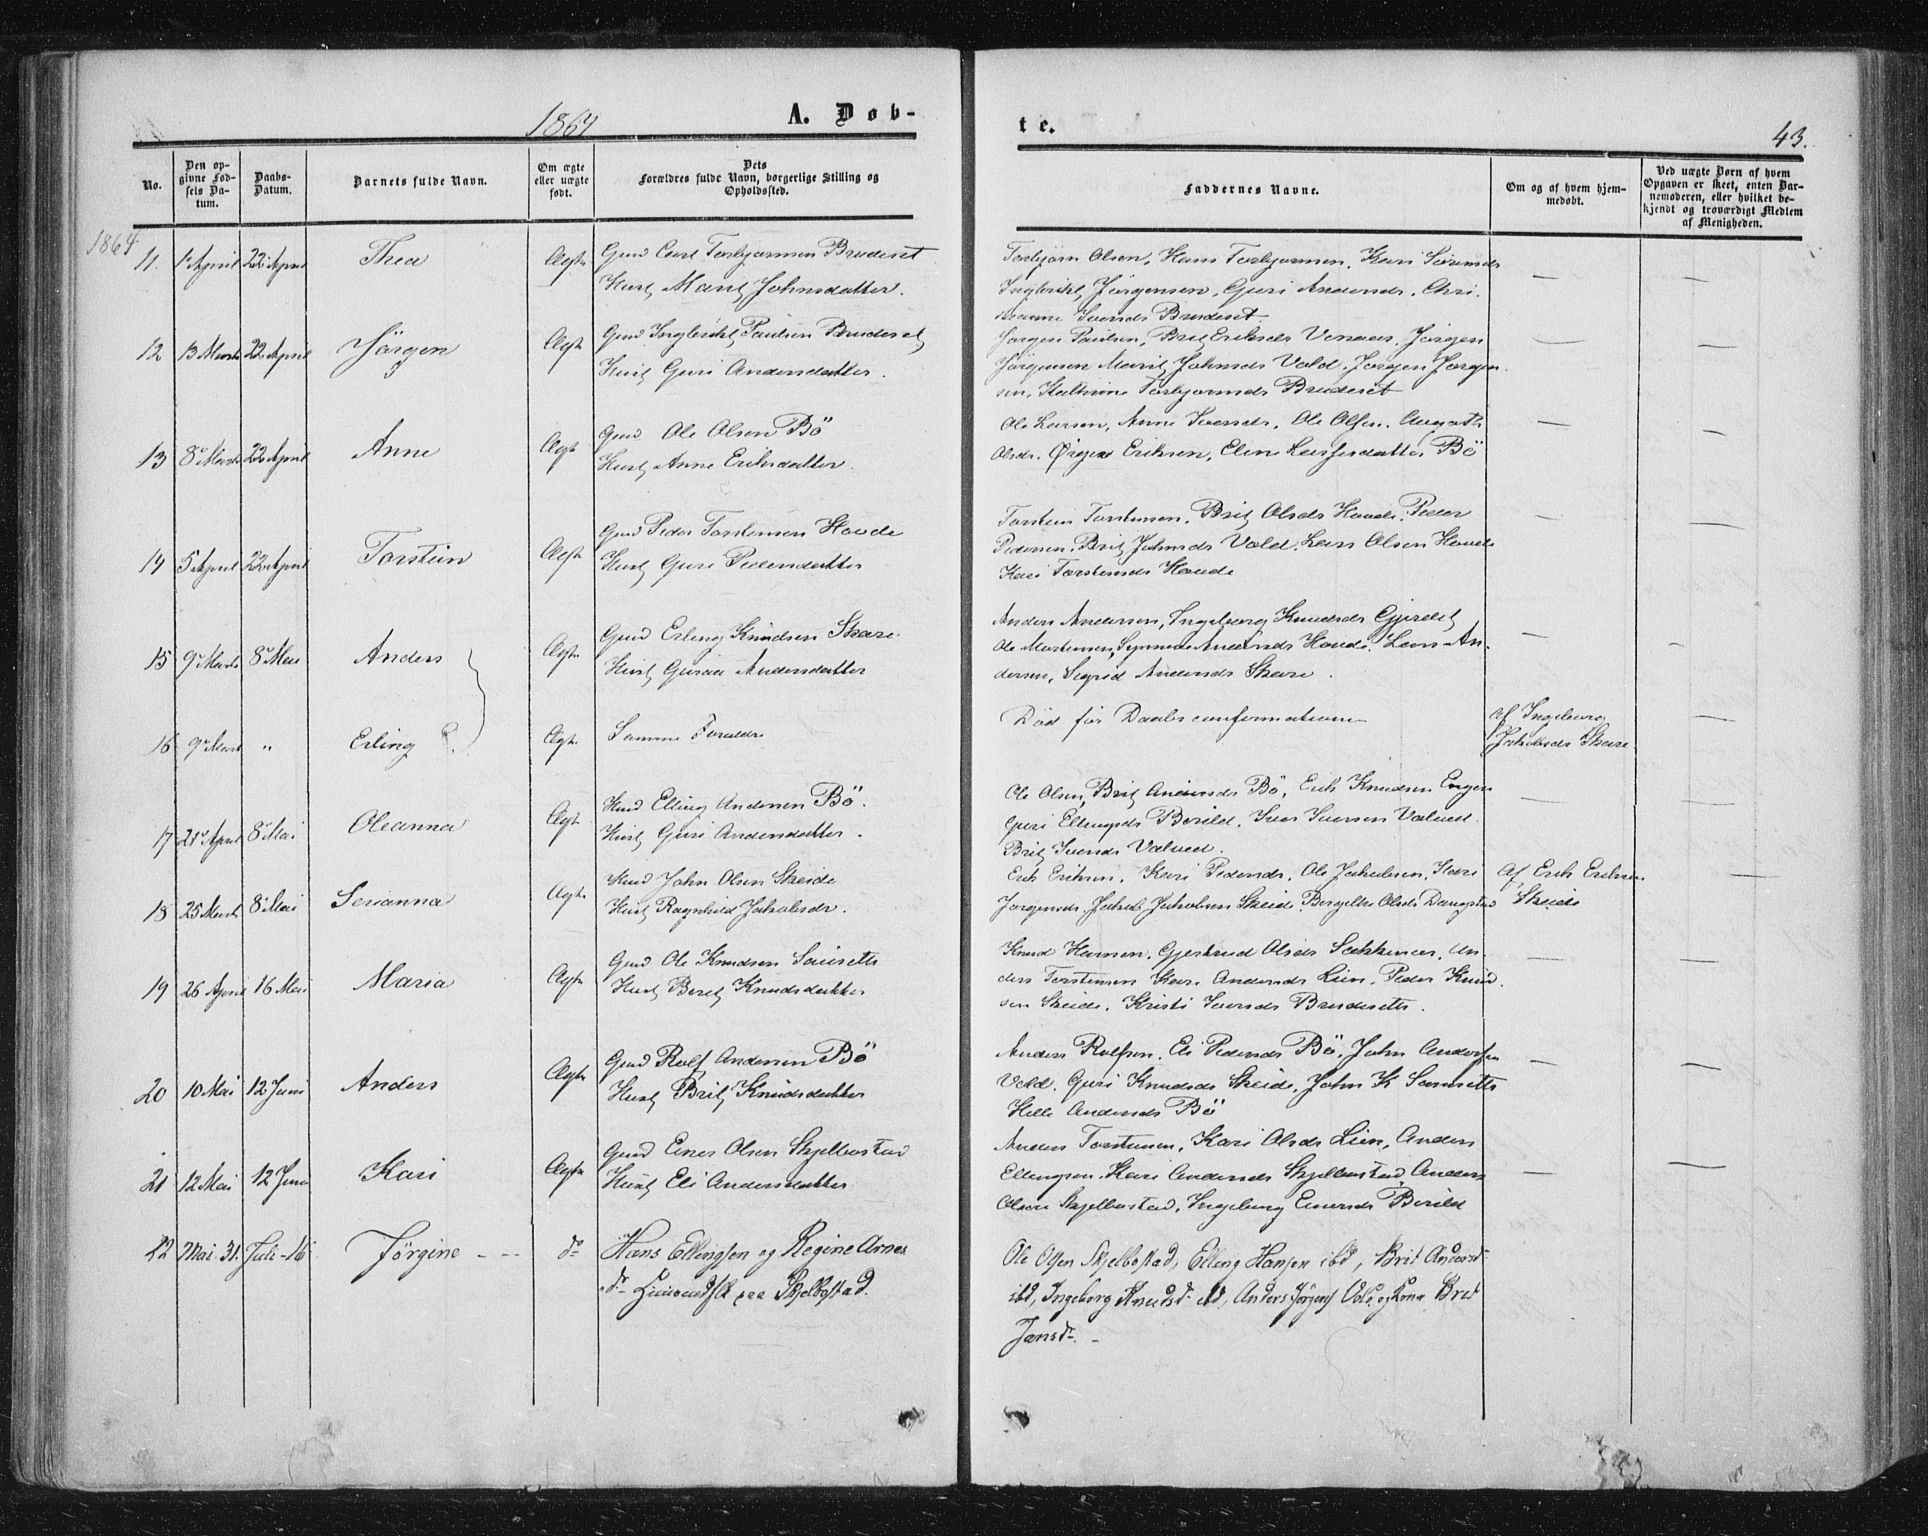 1864
A. Døb-
te.
43.
No.
Den op-
givne Fød-
sels Da-
tum.
Daabs-
Datum.
Barnets fulde Navn.
Om ægte
eller uægte
født.
Dets
Forældres fulde Navn, borgerlige Stilling og
Opholdssted.
Faddernes Navne.
Om og af hvem hjem-
medøbt.
Ved uægte Børn af hvem
Opgaven er skeet, enten Bar-
nemoderen, eller hvilket be-
kjendt og troværdigt Medlem
af Menigheden.
1864
11. 1 April 22 April Thea Ægte Gmd Carl Torbjørnsen Brudeset
Hust Marit Johnsdatter.
Torbjørn Olsen, Hans Torbjørnsen, Kari Sørensdr
Ingbrikt Jørgensen, Guri Andersdr, Chri-
Iversdr Brudeset.
12 13 Marts 22 April Jörgen Ægte Gmd Ingbrikt Paulsen Brudeset
Hust Guri Andersdatter.
Jørgen Paulsen, Brit Eriksdr Venaas, Jørgen
Jørgensen Marit Johnsdr Vold, Jørgen Jørgen-
sen, Kathrine Torbjørnsdr Brudeset
13 8 Marts 22 April Anne Ægte Gmd Ole Olsen Bö
Hust Anne Eriksdatter.
Ole Larsen, Anne Iversdr, Ole Olsen,
Olsdr. Eriksen, Elen Bö
14 5 April 22 April Torstein Ægte Gmd Peder Torstensen Hovde
Hust Guri Pedersdatter
Torstein Torstensen, Brit Olsdr Hovde, Peder
Pedersen, Brit Johnsdr Vold, Lars Olsen Hovde
Kari Torstensdr Hovde
15 9 Marts 8 Mai Anders Ægte Gmd Erling Knudsen Skare
Hust Guraa Andersdatter
Anders Andersen, Ingeborg Knudsdr Gjerdet
Ole Mortensen, Synneve Hovde, Lars An-
dersen, Sigrid Andersdr Skare.
16 9 Marts " Erling Ægte Samme Forældre
Død før Daabsconfirmationen
af Ingeborg
Jakobsdr Skare
17 21 April 8 Mai Oleanna Ægte Hmd Elling Andersen Bö.
Hust Guri Andersdatter.
Ole Olsen, Brit Andersdr Bö, Erik Knudsen Engen
Guri Ellingsdr Berild, Iver Iversen
Brit Iversdr
18 25 Marts 8 Mai Serianna Ægte Hmd John Olsen Skeide
Hust Ragnhild Jakobsdr.
Erik Eriksen, Kari Pedersdr, Ole Jakobsen, Kari
Jørgensdr, Jakob Jakobsen Skeide, Olsdr
Af Erik Eriksen
Skeide
19 26 April 16 Mai Maria Ægte Gmd Ole Knudsen
Hust Berit Knudsdatter
Knud Hansen, Gjertrud Olsdr An-
ders Torstensen Kari Andersdr Lien, Peder Knud-
sen Skeide, Kristi Iversdr
20 10 Mai 12 Juni Anders Ægte Gmd Rolf Andersen Bö
Hust Brit Knudsdatter
Anders Rolfsen, Eli Pedersdr Bö, John Andersen
Vold, Guri Knudsdr Skeide, John K
Helle Andersdr Bö
21 12 Mai 12 Juni Kari Ægte Gmd Einer Olsen Skjelbostad
Hust Eli Andersdatter
Anders Torstensen, Kari Olsdr Lien, Anders
Ellingsen, Kari Andersdr Skjelbostad, Anders
Olsen Skjelbostad, Ingeborg Einersdr Berild
22 Mai 31. Juli-16 Jørgine do Hans Ellingsen og Regine Arnes
dr paa Skjelbostad.
Ole Olsen Skjelbostad, Elling Hansen ibd, Brit Andersd
ibd, Ingeborg Knudsdr ibd, Anders Vold og Kone Brit
Jansdr.